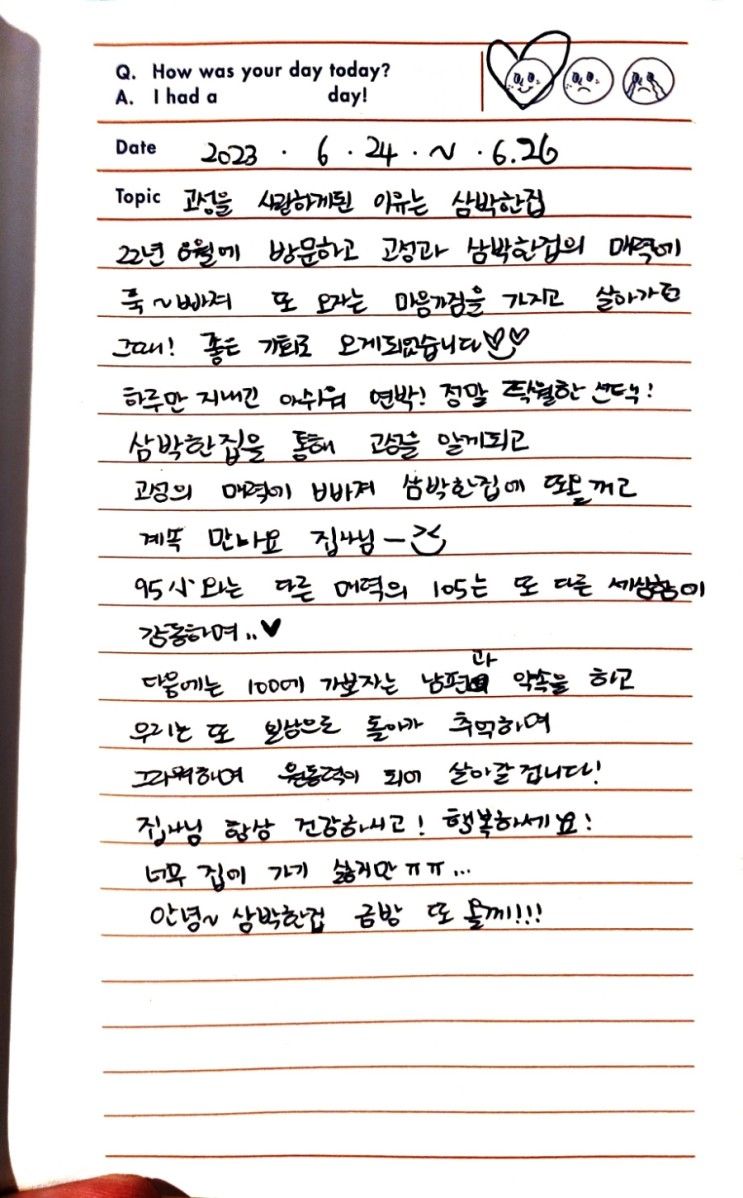 Q. How was your day today?
A. I had a day!
Date 2023 . 6 . 24 . ~ . 6.26
Topic 고성을 사랑하게된 이유는 삼박한집
22년 8월에 방문하고 고성과 삼박한집의 매력에
푹~빠져 또 오자는 마음가짐을 가지고 살아가던
그때! 좋은 기회로 오게되었습니다♡♡
하루만 지내긴 아쉬워 연박! 정말 탁월한 선택!
삼박한집을 통해 고성을 알게되고
고성의 매력에 빠져 삼박한집에 또올꺼고
계쏙 만나요 집사님ㅡ
95小와는 다른 매력의 105는 또 다른 세상함에
감동하며..♥
다음에는 100에 가보자는 남편과 약속을 하고
우리는 또 일상으로 돌아가 추억하며
그리워하며 원동력이 되어 살아갈겁니다!
집사님 항상 건강하시고! 행복하세요!
너무 집에 가기 싫지만 ㅠㅠ...
안녕~ 삼박한집 금방 또 올께!!!